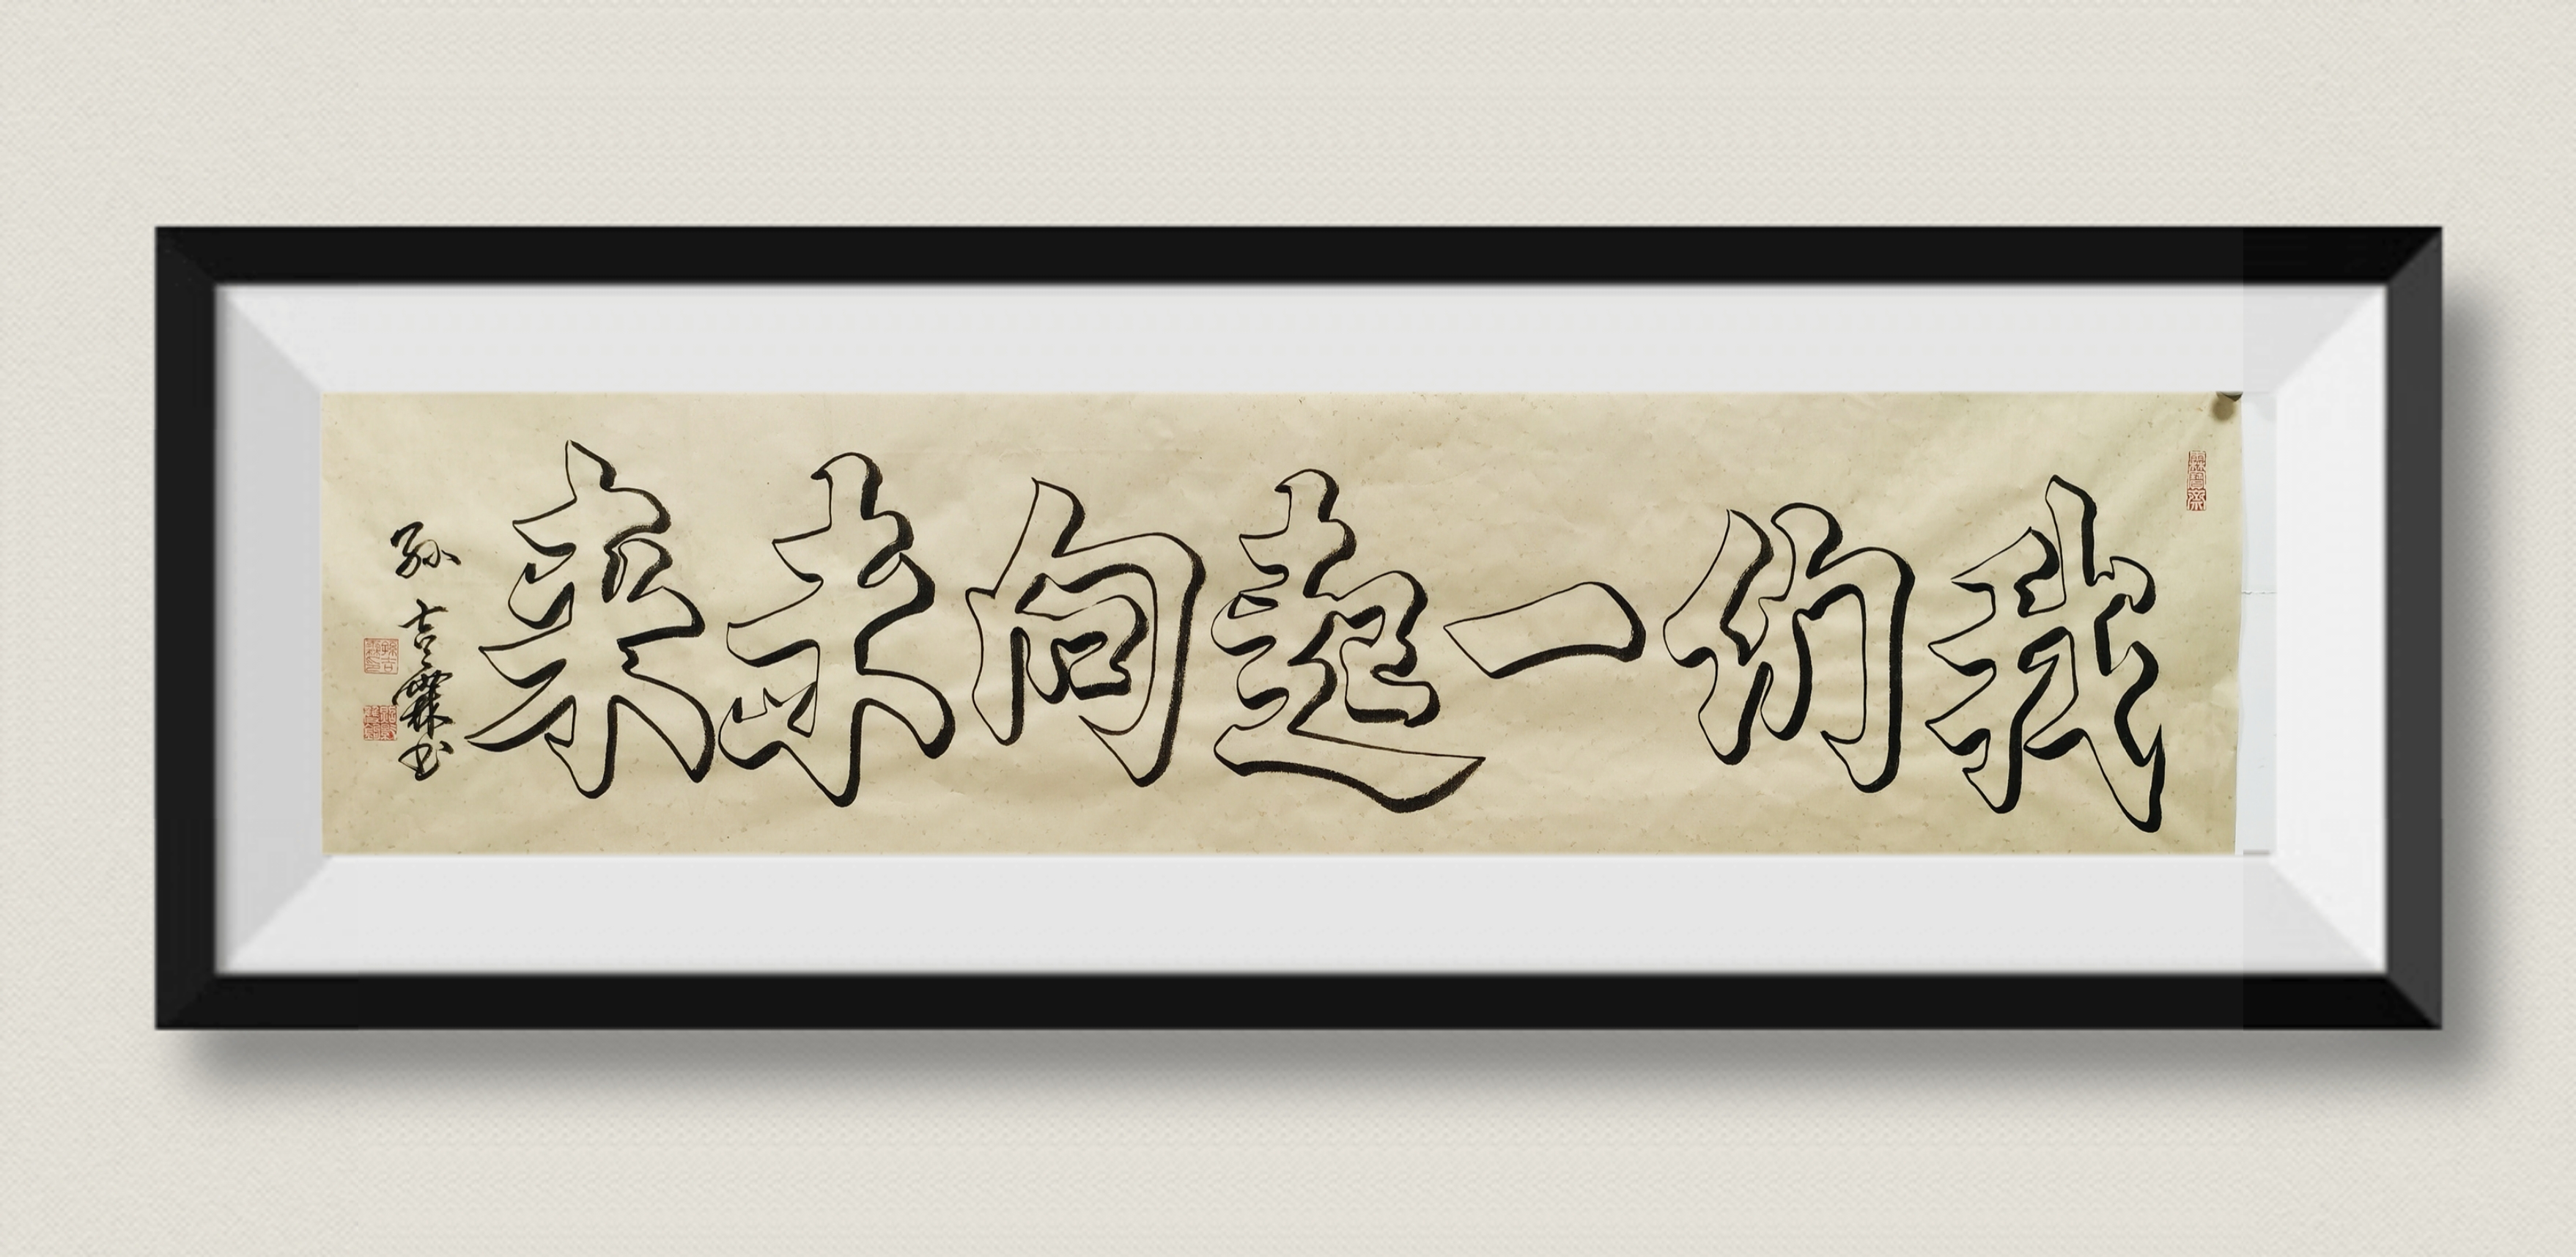 我们一起向未来
孙吉霖书